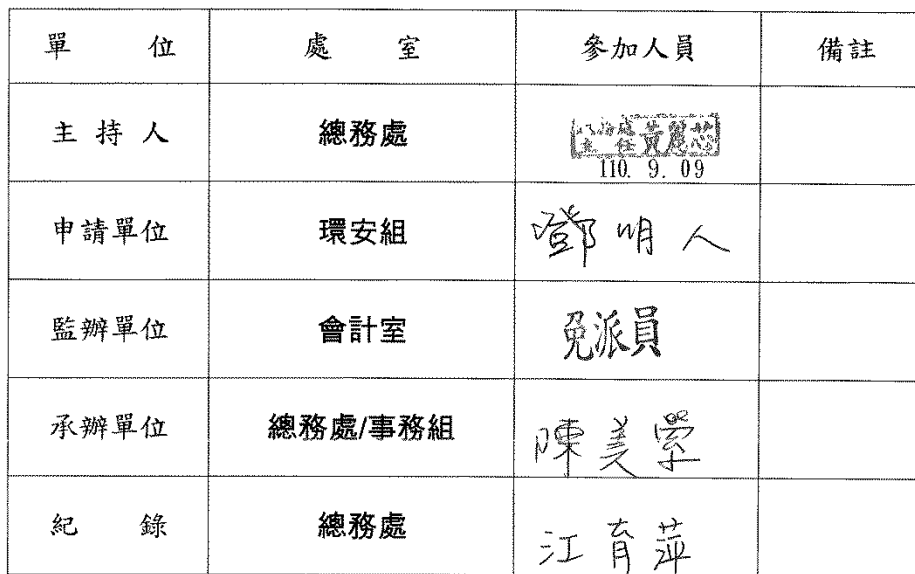 單 位 處 室 參加人員 備註
主 持 人 總務處 主 任 黃麗芯
110. 9. 09
申請單位 環安組 鄧明人
監辦單位 會計室 免派員
承辦單位 總務處/事務組 陳美
紀 錄 總務處 江育萍